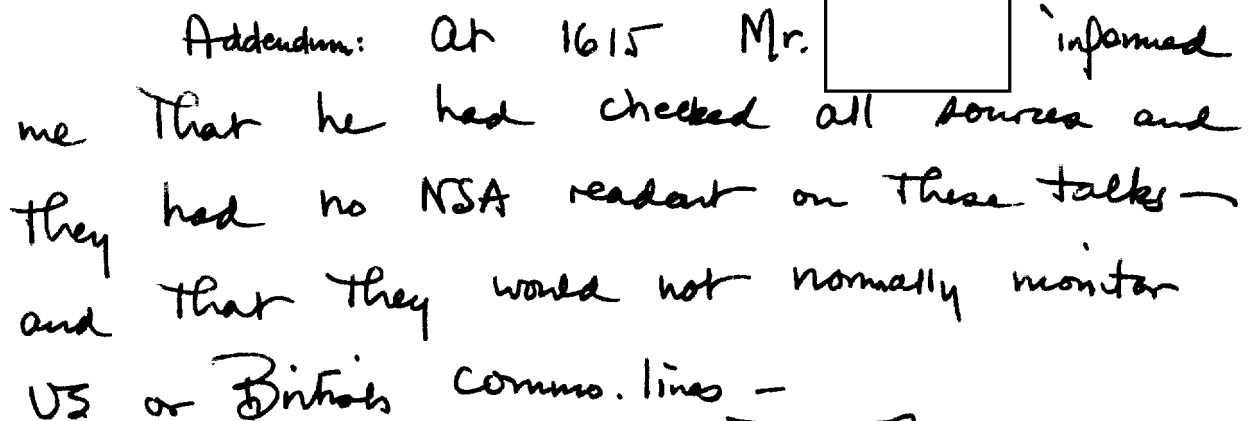 Addendum: At 1615 Mr. informed
me that he had checked all sources and
they had no NSA readout on these talks —
and that they would not normally monitor
US or British commo. lines —